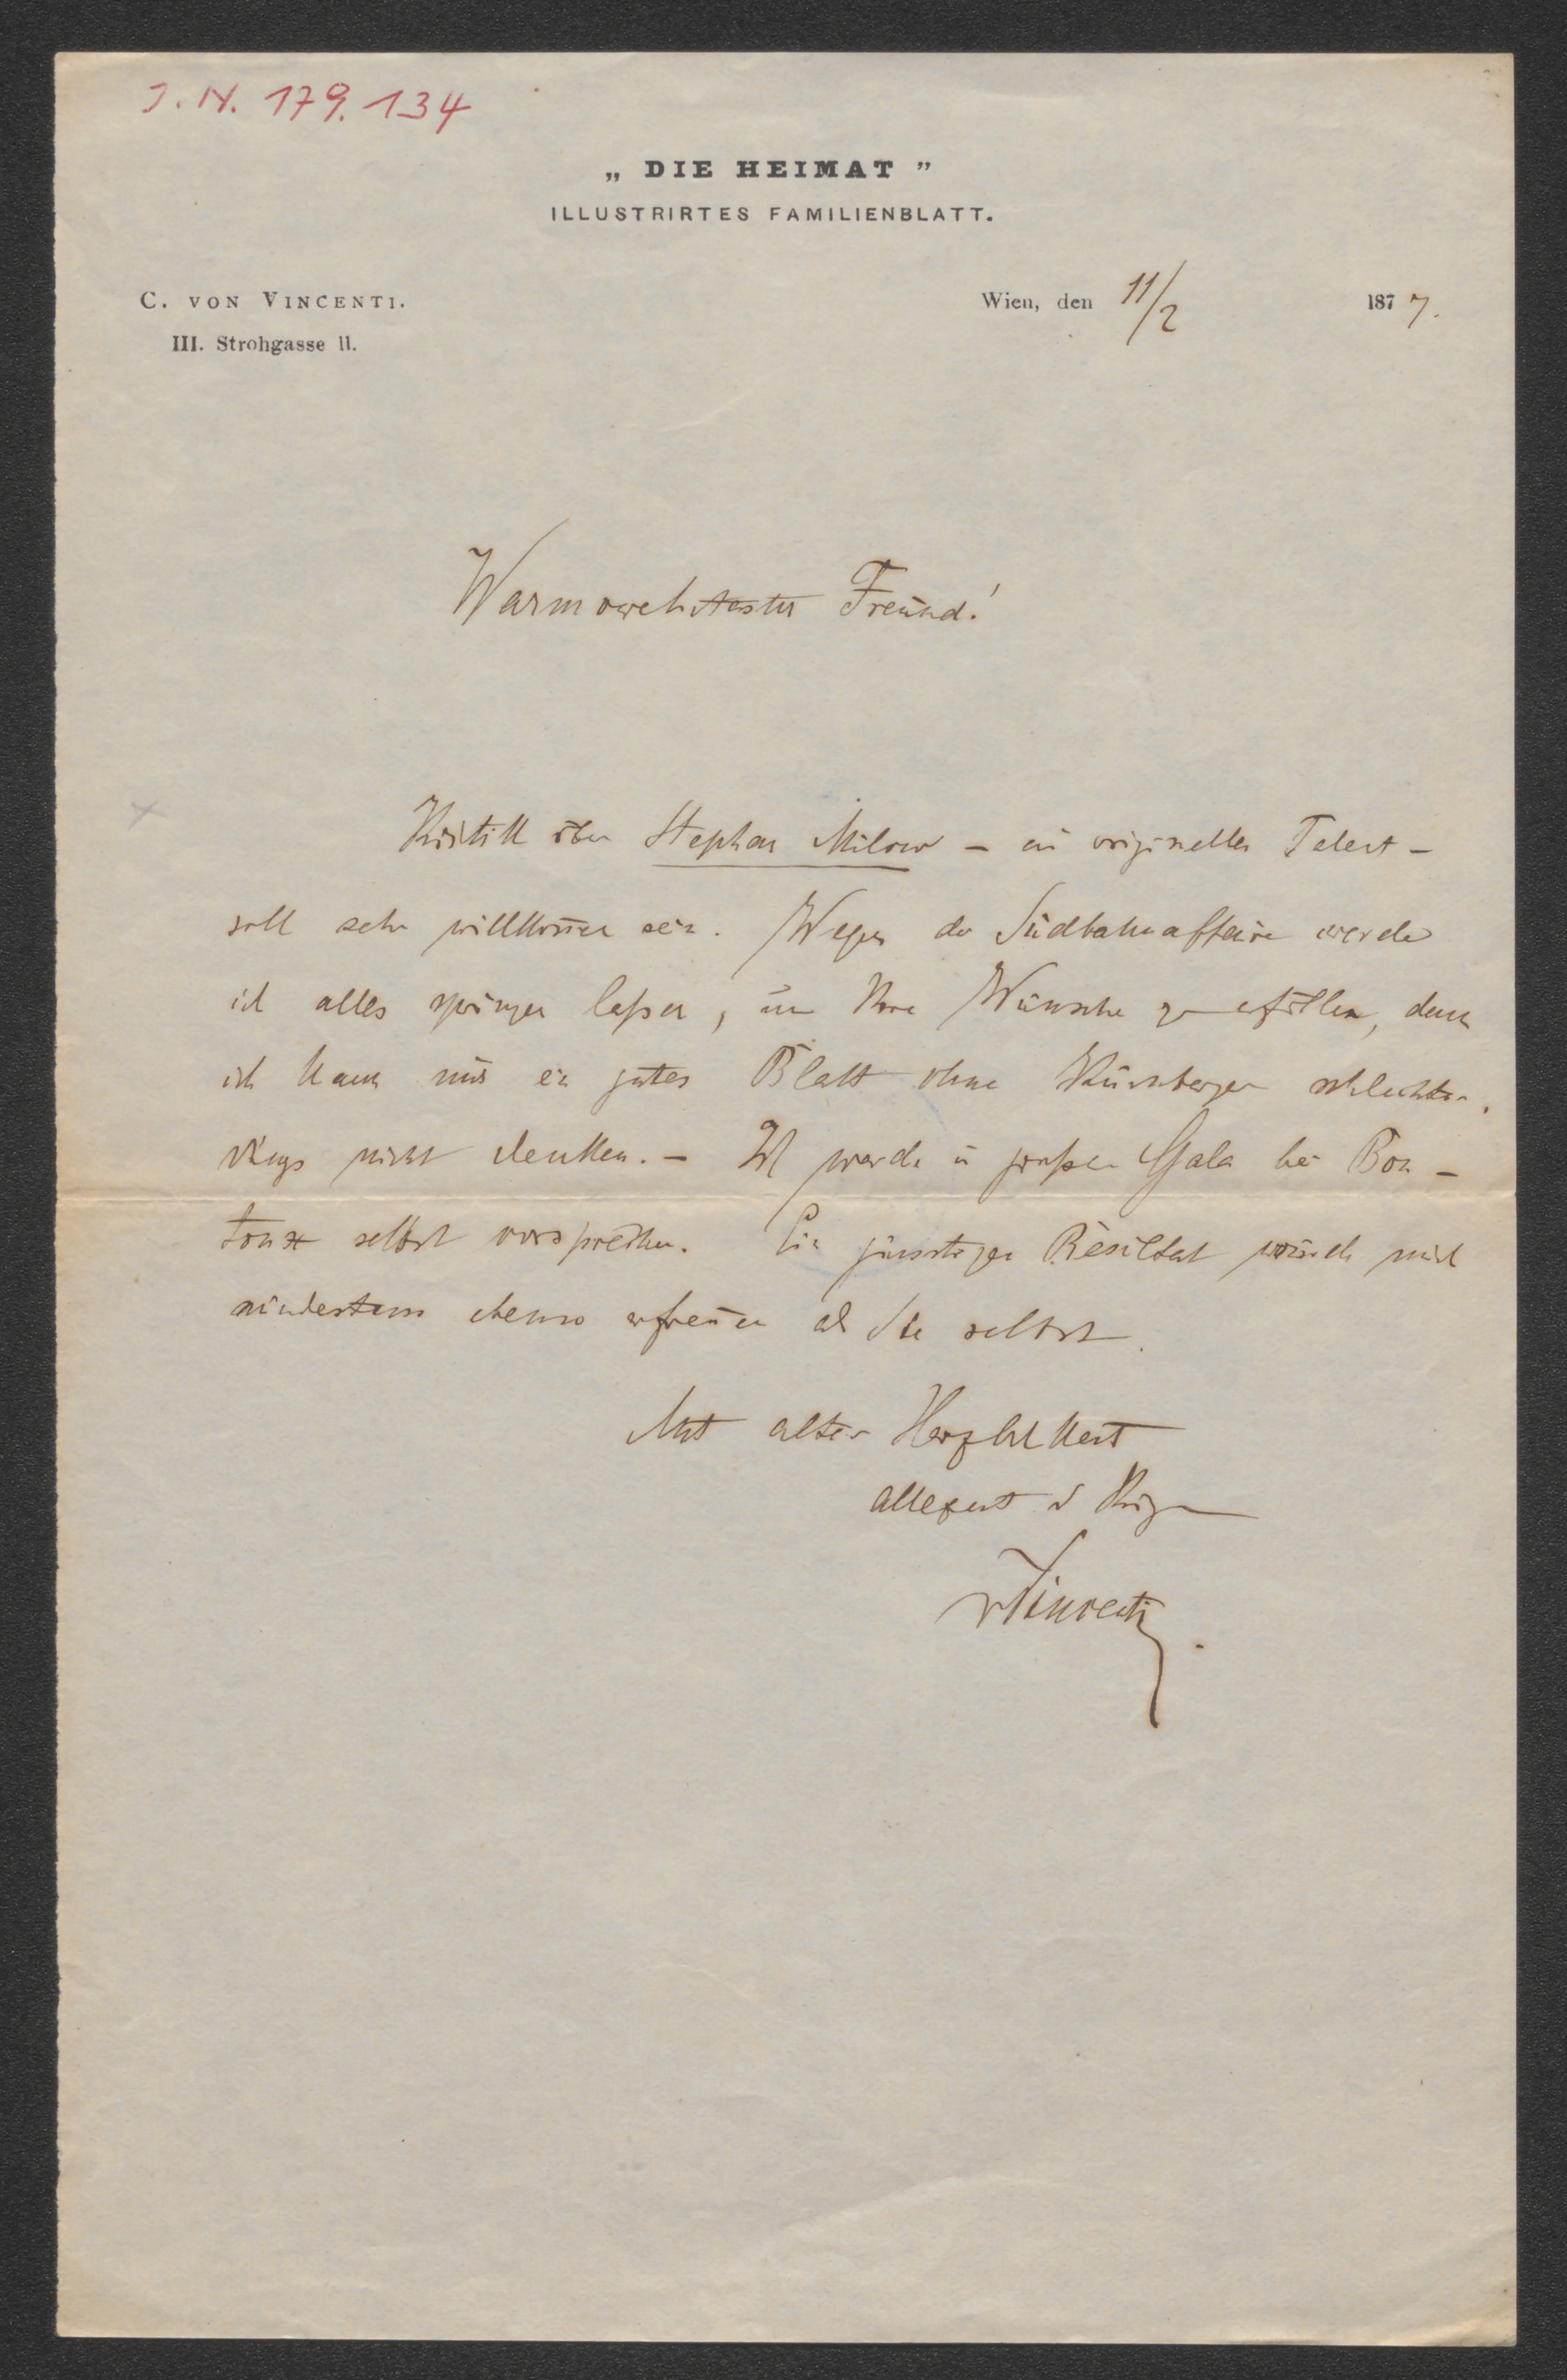 J. N. 179.134
„ DIE HEIMAT ”
ILLUSTRIRTES FAMILIENBLATT.
C. VON VINCENTI.
III. Strohgasse 11.
Wien, den 11/2 1877.
Warmverehrtester Freund!
Kritik über Stephan Milow – ein origineller Talent –
soll sehr willkommen sein. Wegen der Südbahnaffaire werde
ich alles springen laßen, um Ihre Wünsche zu erfüllen, denn
ich kann mir ein gutes Blatt ohne Kürnberger schlechter-
dings nicht denken. – Ich werde in großer Gala bei Bon-
toux selbst vorsprechen. Ein günstiges Resultat würde mich
mindestens ebenso erfreuen als Sie selbst.
Mit alter Herzlichkeit
allezeit d Ihrige
vVincenti.